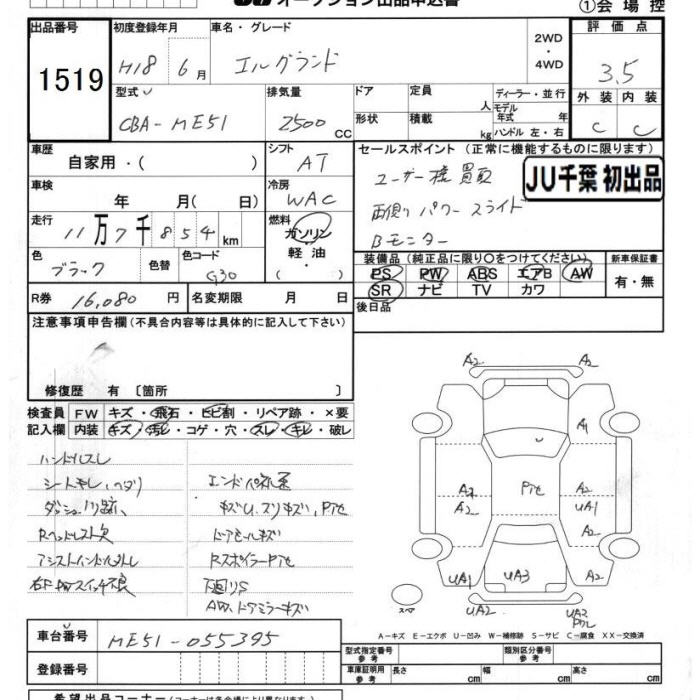 オークション出品申込書
①会場控
出品番号
1519
初度登録年月
H18 6月
車名・グレード
エルグランド
2WD
・
4WD
評価点
3.5
型式
CBA-ME51
排気量
2500 CC
ドア
定員
人
ディーラー・並行
モデル年式 年
形状
積載
kg
ハンドル 左・右
外装
内装
C
C
車歴
自家用・( )
シフト
AT
セールスポイント (正常に機能するものに限ります)
ユーザー様買取
両側パワースライド
Bモニター
JU千葉 初出品
車検
年 月 ( 日)
冷房
WAC
走行
11万7千854km
燃料
ガソリン
・
軽油
・
( )
色
ブラック
色替
色コード
G30
装備品 (純正品に限り〇をつけてください)
新車保証書
PS PW ABS エアB AW
SR ナビ TV カワ
有・無
R券
16,080円
名変期限 月 日
後日品
注意事項申告欄 (不具合内容等は具体的に記入して下さい)
修復歴 有 〔箇所 〕
検査員
記入欄
FW キズ・飛石・ヒビ割・リペア跡・×要
内装 キズ・汚レ・コゲ・穴・スレ・キレ・破レ
ハンドルスレ
シートキレ、ヘタリ
ダッシュノリ跡、
Rヘッドレスト欠
アシストハンドル外レ
右F PWスイッチ不良
キズU、スリキズ、Pアセ
ドアモールキズ
RスポイラーPアセ
下廻りS
AW、ドアミラーキズ
A2
A2
A1
A2
A2
Pアセ
A2
UA1
UA1
UA3
A2
スペア
UA2
UA2
Pアセ
A-キズ E-エクボ U-凹み W-補修跡 S-サビ C-腐食 XX-交換済
車台番号
ME51-055395
登録番号
型式指定番号
参考
類別区分番号
参考
車庫証明用
参考
長さ cm
幅 cm
高さ cm
希望出品コーナー